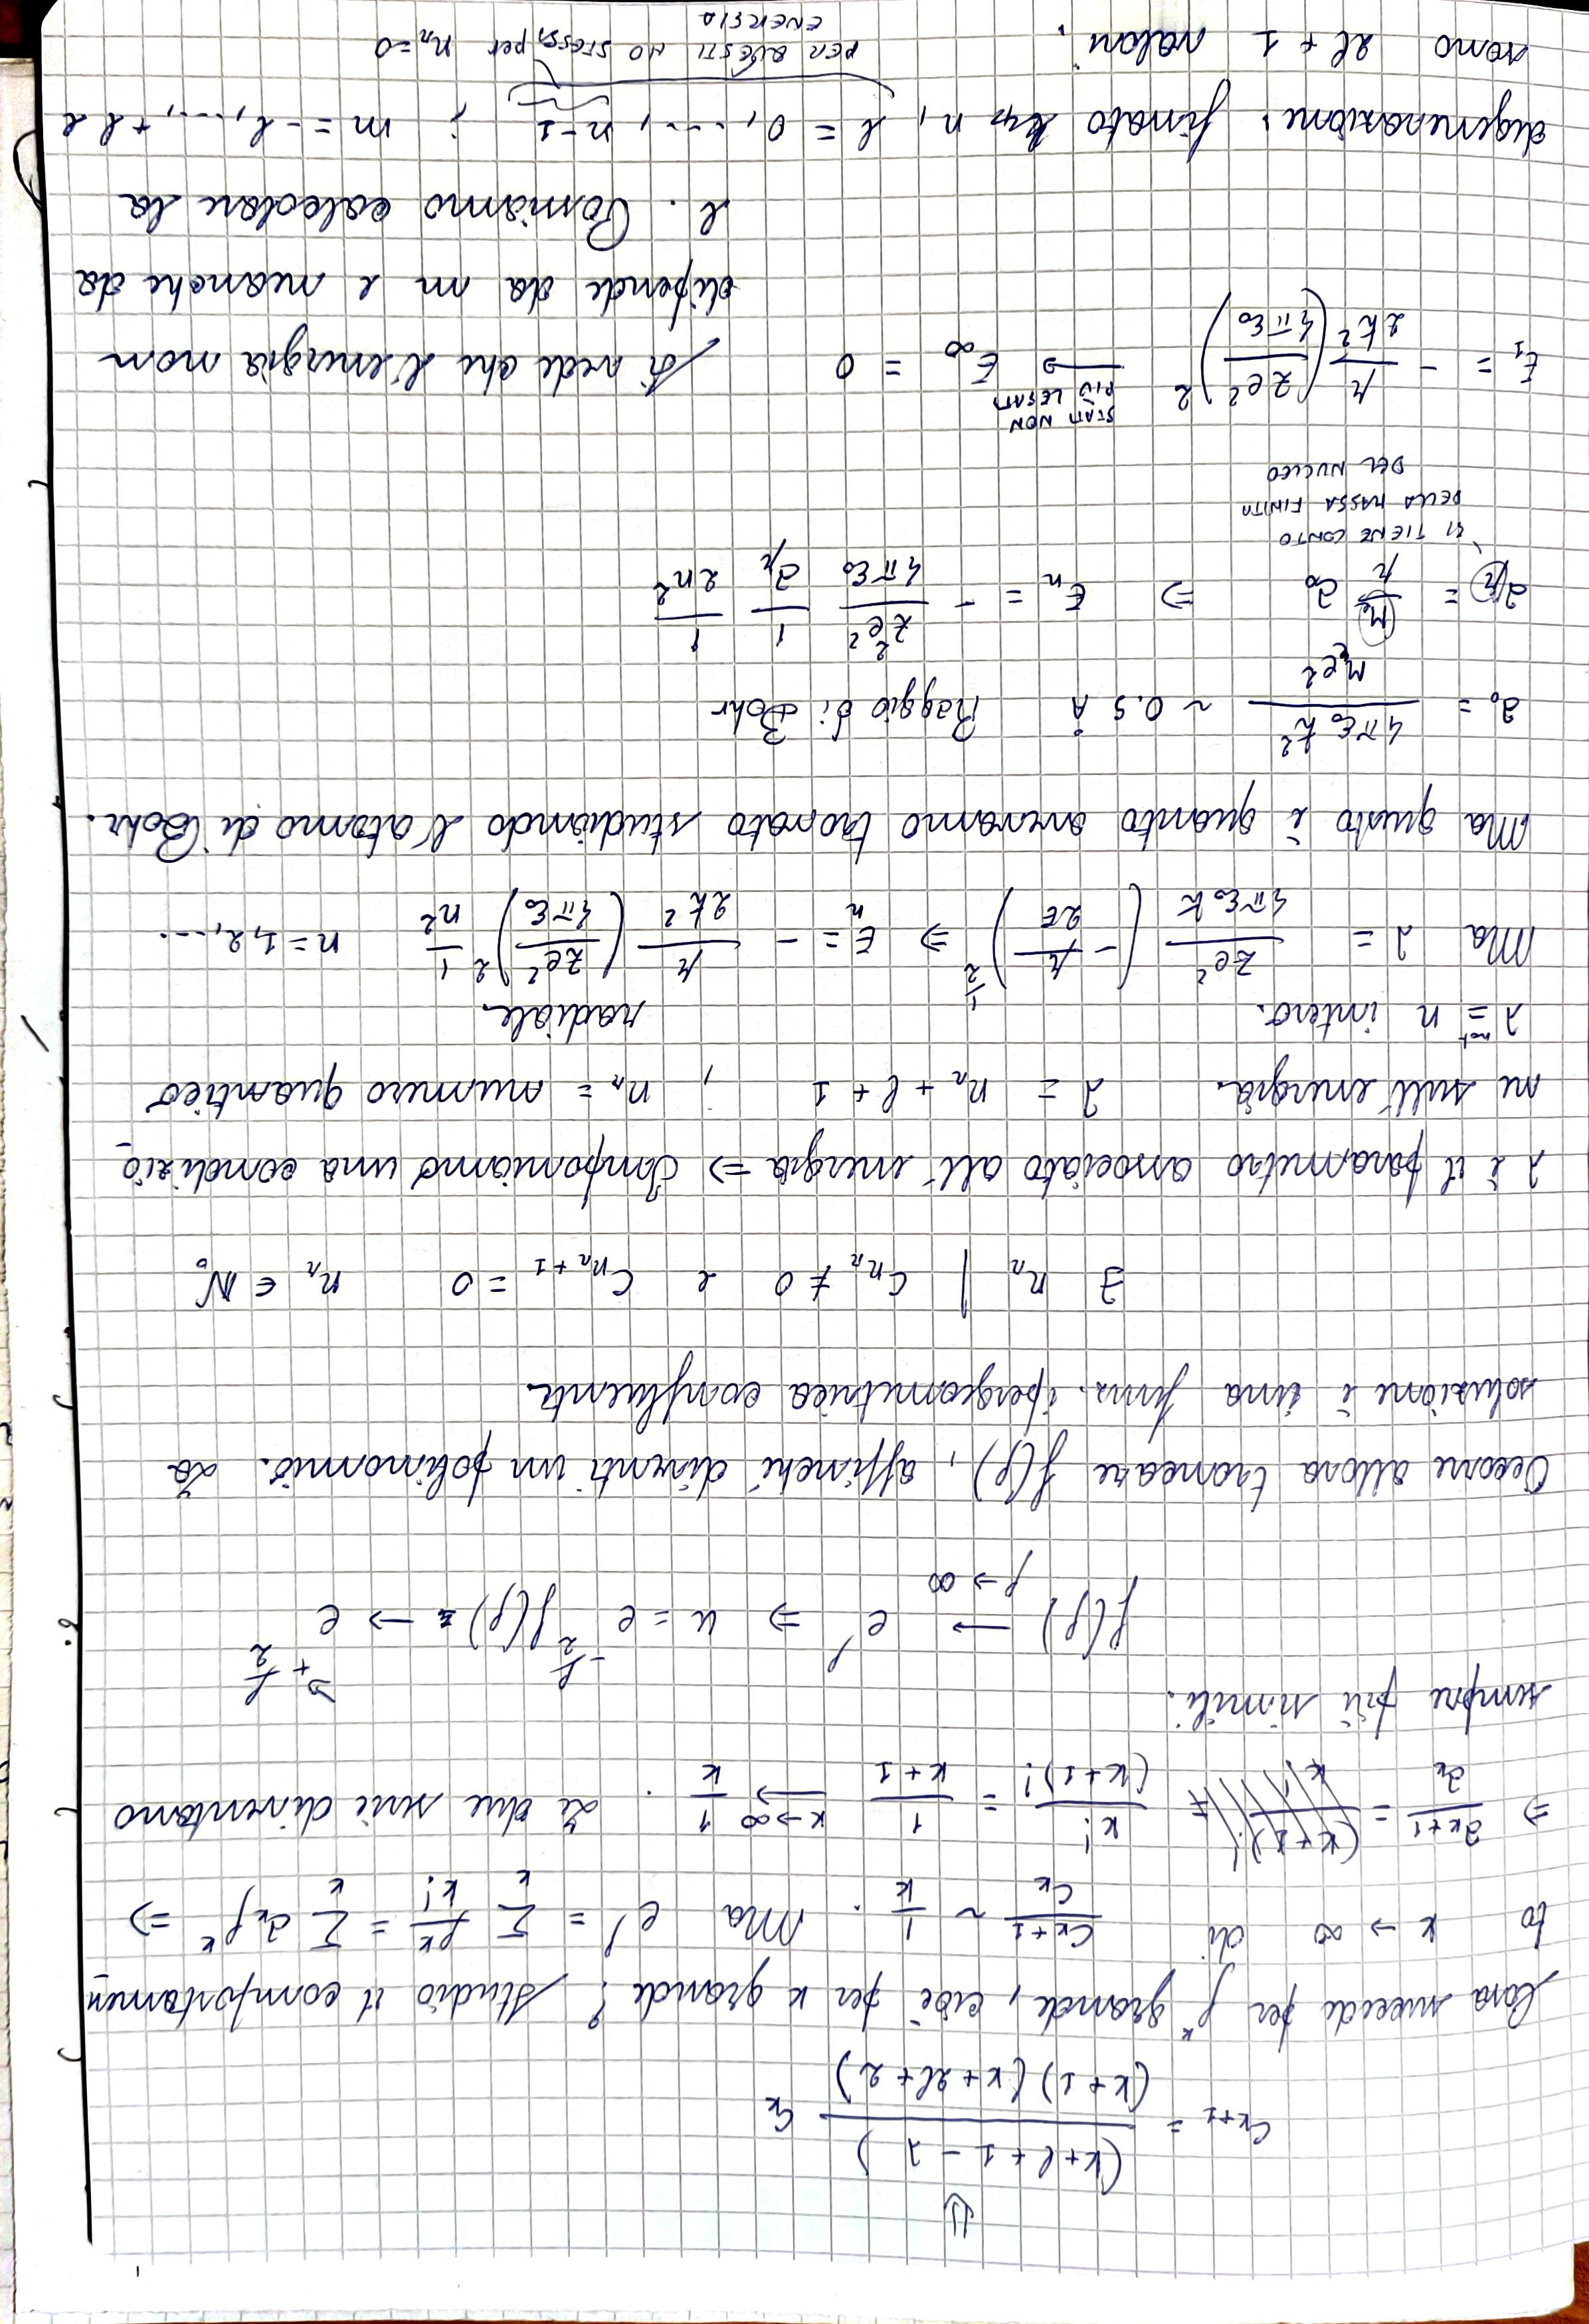 ⇓
c_{k+1} = \frac{(k+l+1-λ)}{(k+1)(k+2l+2)} c_k
Cosa succede per ρ^k grande, cioè per k grande? Studio il comportamen
to k → ∞ di \frac{c_{k+1}}{c_k} ~ \frac{1}{k}. Ma e^ρ = \sum_k \frac{ρ^k}{k!} = \sum_k a_k ρ^k ⇒
⇒ \frac{a_{k+1}}{a_k} = \frac{k!}{(k+1)!} = \frac{1}{k+1} \xrightarrow{k→∞} \frac{1}{k}. Le due serie diventano
sempre più simili.
f(ρ) \xrightarrow{ρ→∞} e^ρ ⇒ u = e^{-\frac{ρ}{2}} f(ρ) → e^{+\frac{ρ}{2}}
Occorre allora troncare f(ρ), affinché diventi un polinomio. La
soluzione è una funz. ipergeometrica confluente.
∃ n_r | c_{n_r} ≠ 0 e c_{n_r+1} = 0 n_r ∈ N_0
λ è il parametro associato all'energia ⇒ Imponiamo una condizio
ne sull'energia. λ = n_r + l + 1 , n_r = numero quantico
radiale.
λ \overset{not}{=} n intero.
Ma λ = \frac{Ze²}{4πε_0 ħ} \left(-\frac{μ}{2E}\right)^{\frac{1}{2}} ⇒ E_n = -\frac{μ}{2ħ²} \left(\frac{Ze²}{4πε_0}\right)^2 \frac{1}{n²} n = 1, 2, ...
Ma questo è quanto avevamo trovato studiando l'atomo di Bohr.
a_0 = \frac{4πε_0 ħ²}{m_e e²} ~ 0.5 Å Raggio di Bohr
a_μ = \frac{m_e}{μ} a_0 ⇒ E_n = -\frac{Z²e²}{4πε_0} \frac{1}{a_μ} \frac{1}{2n²}
SI TIENE CONTO
DELLA MASSA FINITA
DEL NUCLEO
STATI NON
PIÙ LEGATI
E_1 = -\frac{μ}{2ħ²} \left(\frac{Ze²}{4πε_0}\right)^2 → E_∞ = 0 Si vede che l'energia non
dipende da m e neanche da
l. Possiamo calcolare la
degenerazione: fissato n, l = 0, ..., n-1 ; m = -l, ..., +l e
sono 2l + 1 valori.
PER QUESTI HO STESSA
ENERGIA
per n_r = 0